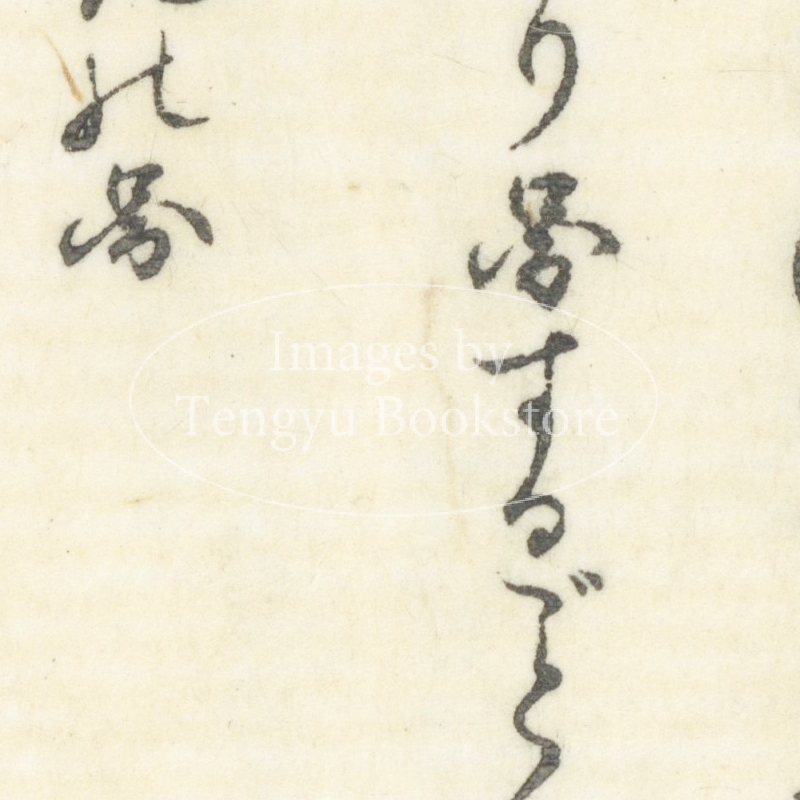 り圖するごと
の圖
Images by
Tengyu Bookstore